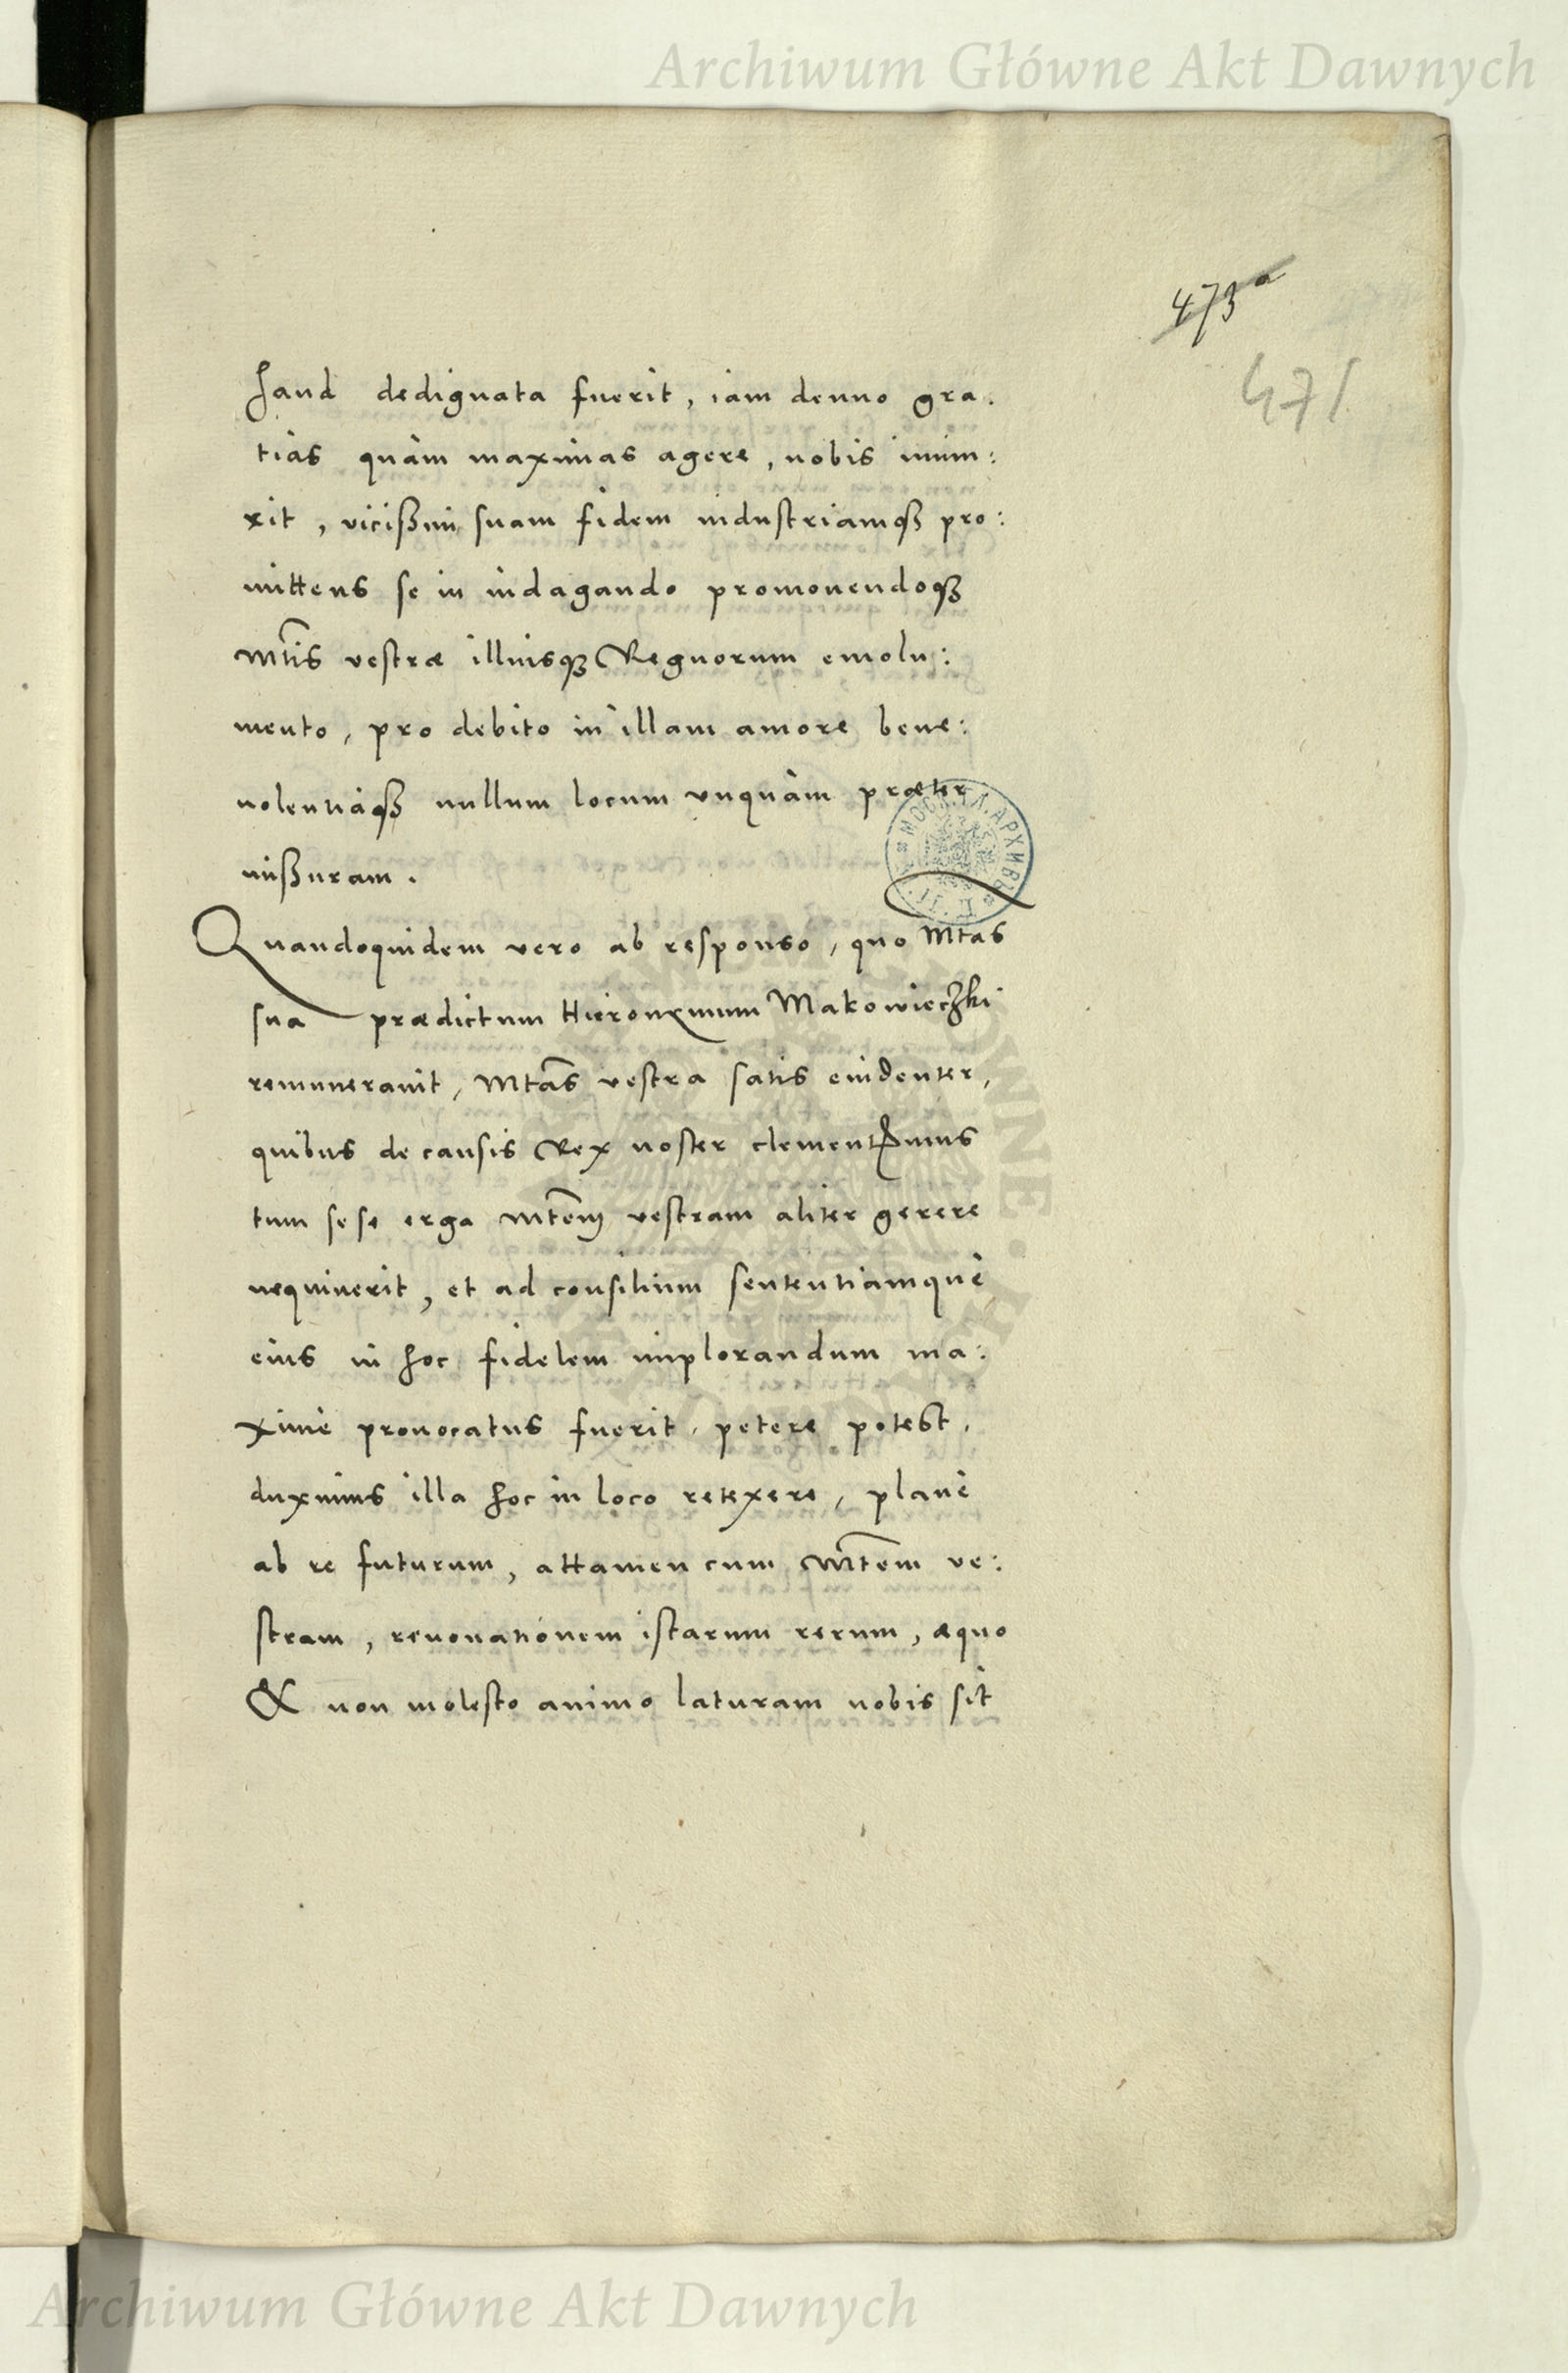 Archiwum Główne Akt Dawnych
473a
471
haud dedignata fuerit, iam denuo gra.
tias quàm maximas agere, nobis iniun:
xit, vicißim suam fidem industriamqꝫ pro:
mittens se in indagando promouendoqꝫ
Mtis vestræ illiusqꝫ Regnorum emolu:
mento, pro debito in illam amore bene:
uolentiáqꝫ nullum locum vnquàm præter
mißuram.
Quandoquidem vero ab responso, quo Mtas
sua prædictum Hieronymum Makowieczki
remunerauit, Mtas vestra satis euidenter,
quibus de causis Rex noster clementißimus
tum sese erga Mtem vestram aliter gerere
nequiuerit, et ad consilium sententiamque
eius in hoc fidelem implorandum ma:
ximè prouocatus fuerit, petere potest,
duximus illa hoc in loco retexere, planè
ab re futurum, attamen cum Mtem ve:
stram, renouationem istarum rerum, æquo
& non molesto animo laturam nobis sit
Archiwum Główne Akt Dawnych